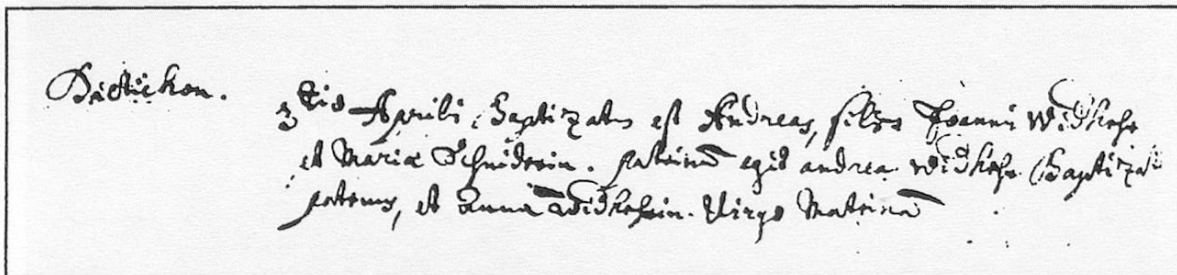 Dietickon.
3tio Aprili baptizatus est Andreas, filius Joannis Widkehr
et Maria Schniderin. patrinum egit andrea Widkehr baptizati
patruus, et Anna Widkehrin. Virgo Matrina